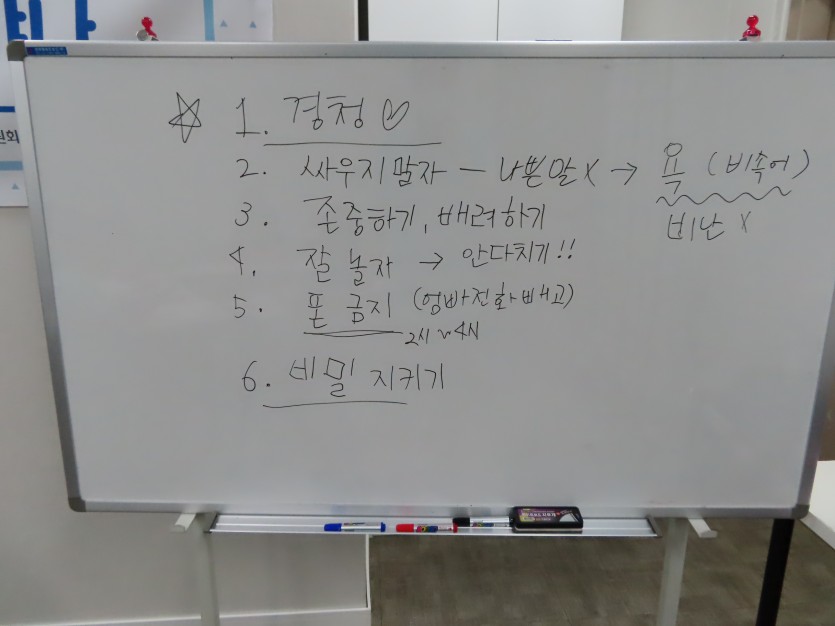 ☆ 1. 경청 ♡
2. 싸우지말자 — 나쁜말 X → 욕 (비속어)
비난 X
3. 존중하기, 배려하기
4. 잘 놀자 → 안다치기!!
5. 폰 금지 (엄빠전화빼고)
2시~4시
6. 비밀 지키기
원회